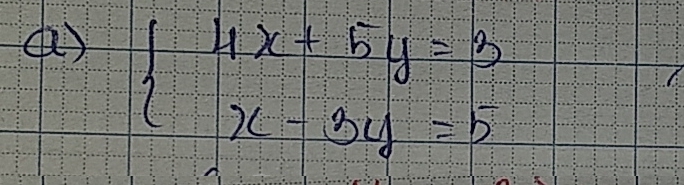 a) { 4x + 5y = 3
x - 3y = 5